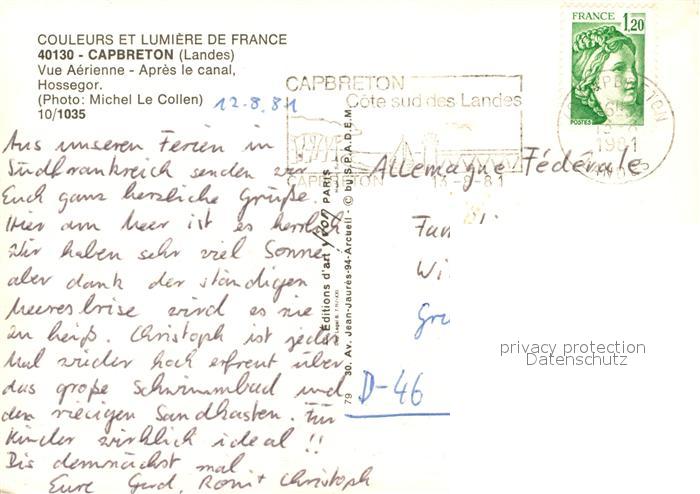 COULEURS ET LUMIÈRE DE FRANCE
40130 - CAPBRETON (Landes)
Vue Aérienne - Après le canal,
Hossegor.
(Photo: Michel Le Collen)
10/1035
12.8.81
Aus unseren Ferien in
Südfrankreich senden wir
Euch ganz herzliche Grüße.
Hier am Meer ist es herrlich
Wir haben sehr viel Sonne,
aber dank der ständigen
Meeresbrise wird es nie
zu heiß. Christoph ist jedes
Mal wieder hoch erfreut über
das große Schwimmbad und
den riesigen Sandkasten. Für
Kinder wirklich ideal!!
Bis demnächst mal
Eure Gerd, Romi + Christoph
Éditions d'art yvon PARIS
© by S.P.A.D.E.M.
79 30, Av. Jean-Jaurès-94-Arcueil
CAPBRETON
Côte sud des Landes
CAPBRETON 13-8-81
FRANCE
1,20
POSTES
CAPBRETON
1981
Allemagne Fédérale
Fam
Wi
Gru
D-46
privacy protection
Datenschutz